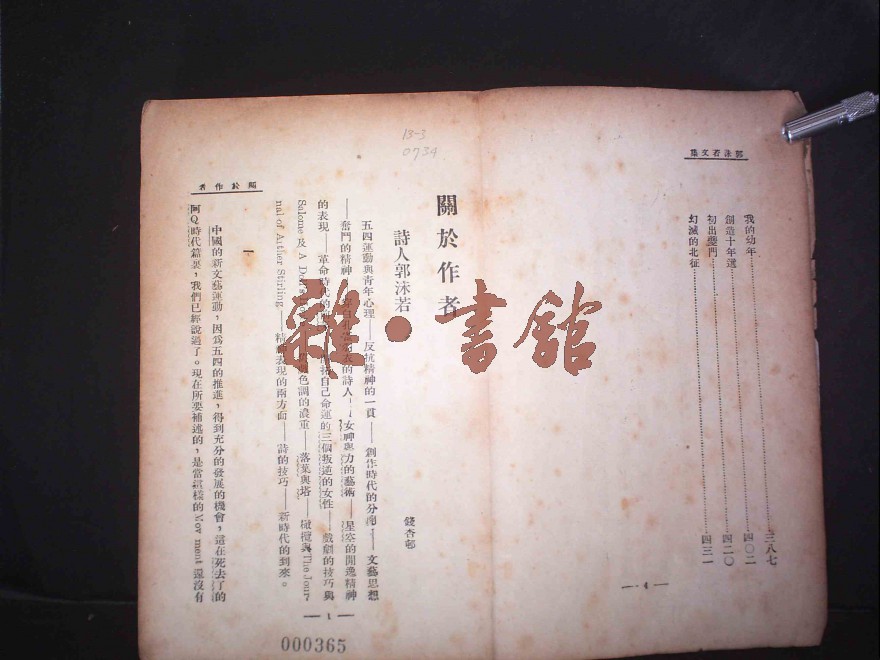 郭沫若文集
我的幼年……三八七
創造十年選……四〇二
初出夔門……四二〇
幻滅的北征……四三一
—·4—
13-3
0734
關於作者
詩人郭沫若
錢杏邨
五四運動與青年心理——反抗精神的一貫——創作時代的分劃——文藝思想
——奮鬥的精神——的詩人——女神與力的藝術——星空的閒逸精神
的表現——革命時代的自己命運的三個叛逆的女性——戲劇的技巧與
Salome 及 A Doll's 色調的濃重——落葉與塔——橄欖與The Jour-
nal of Arther Stirling——精神表現的兩方面——詩的技巧——新時代的到來。
一
中國的新文藝運動,因爲五四的推進,得到充分的發展的機會,這在死去了的
阿Q時代篇裏,我們已經說過了。現在所要補述的,是當這樣的Mov ment 還沒有
關於作者
—1—
000365
雜·書館